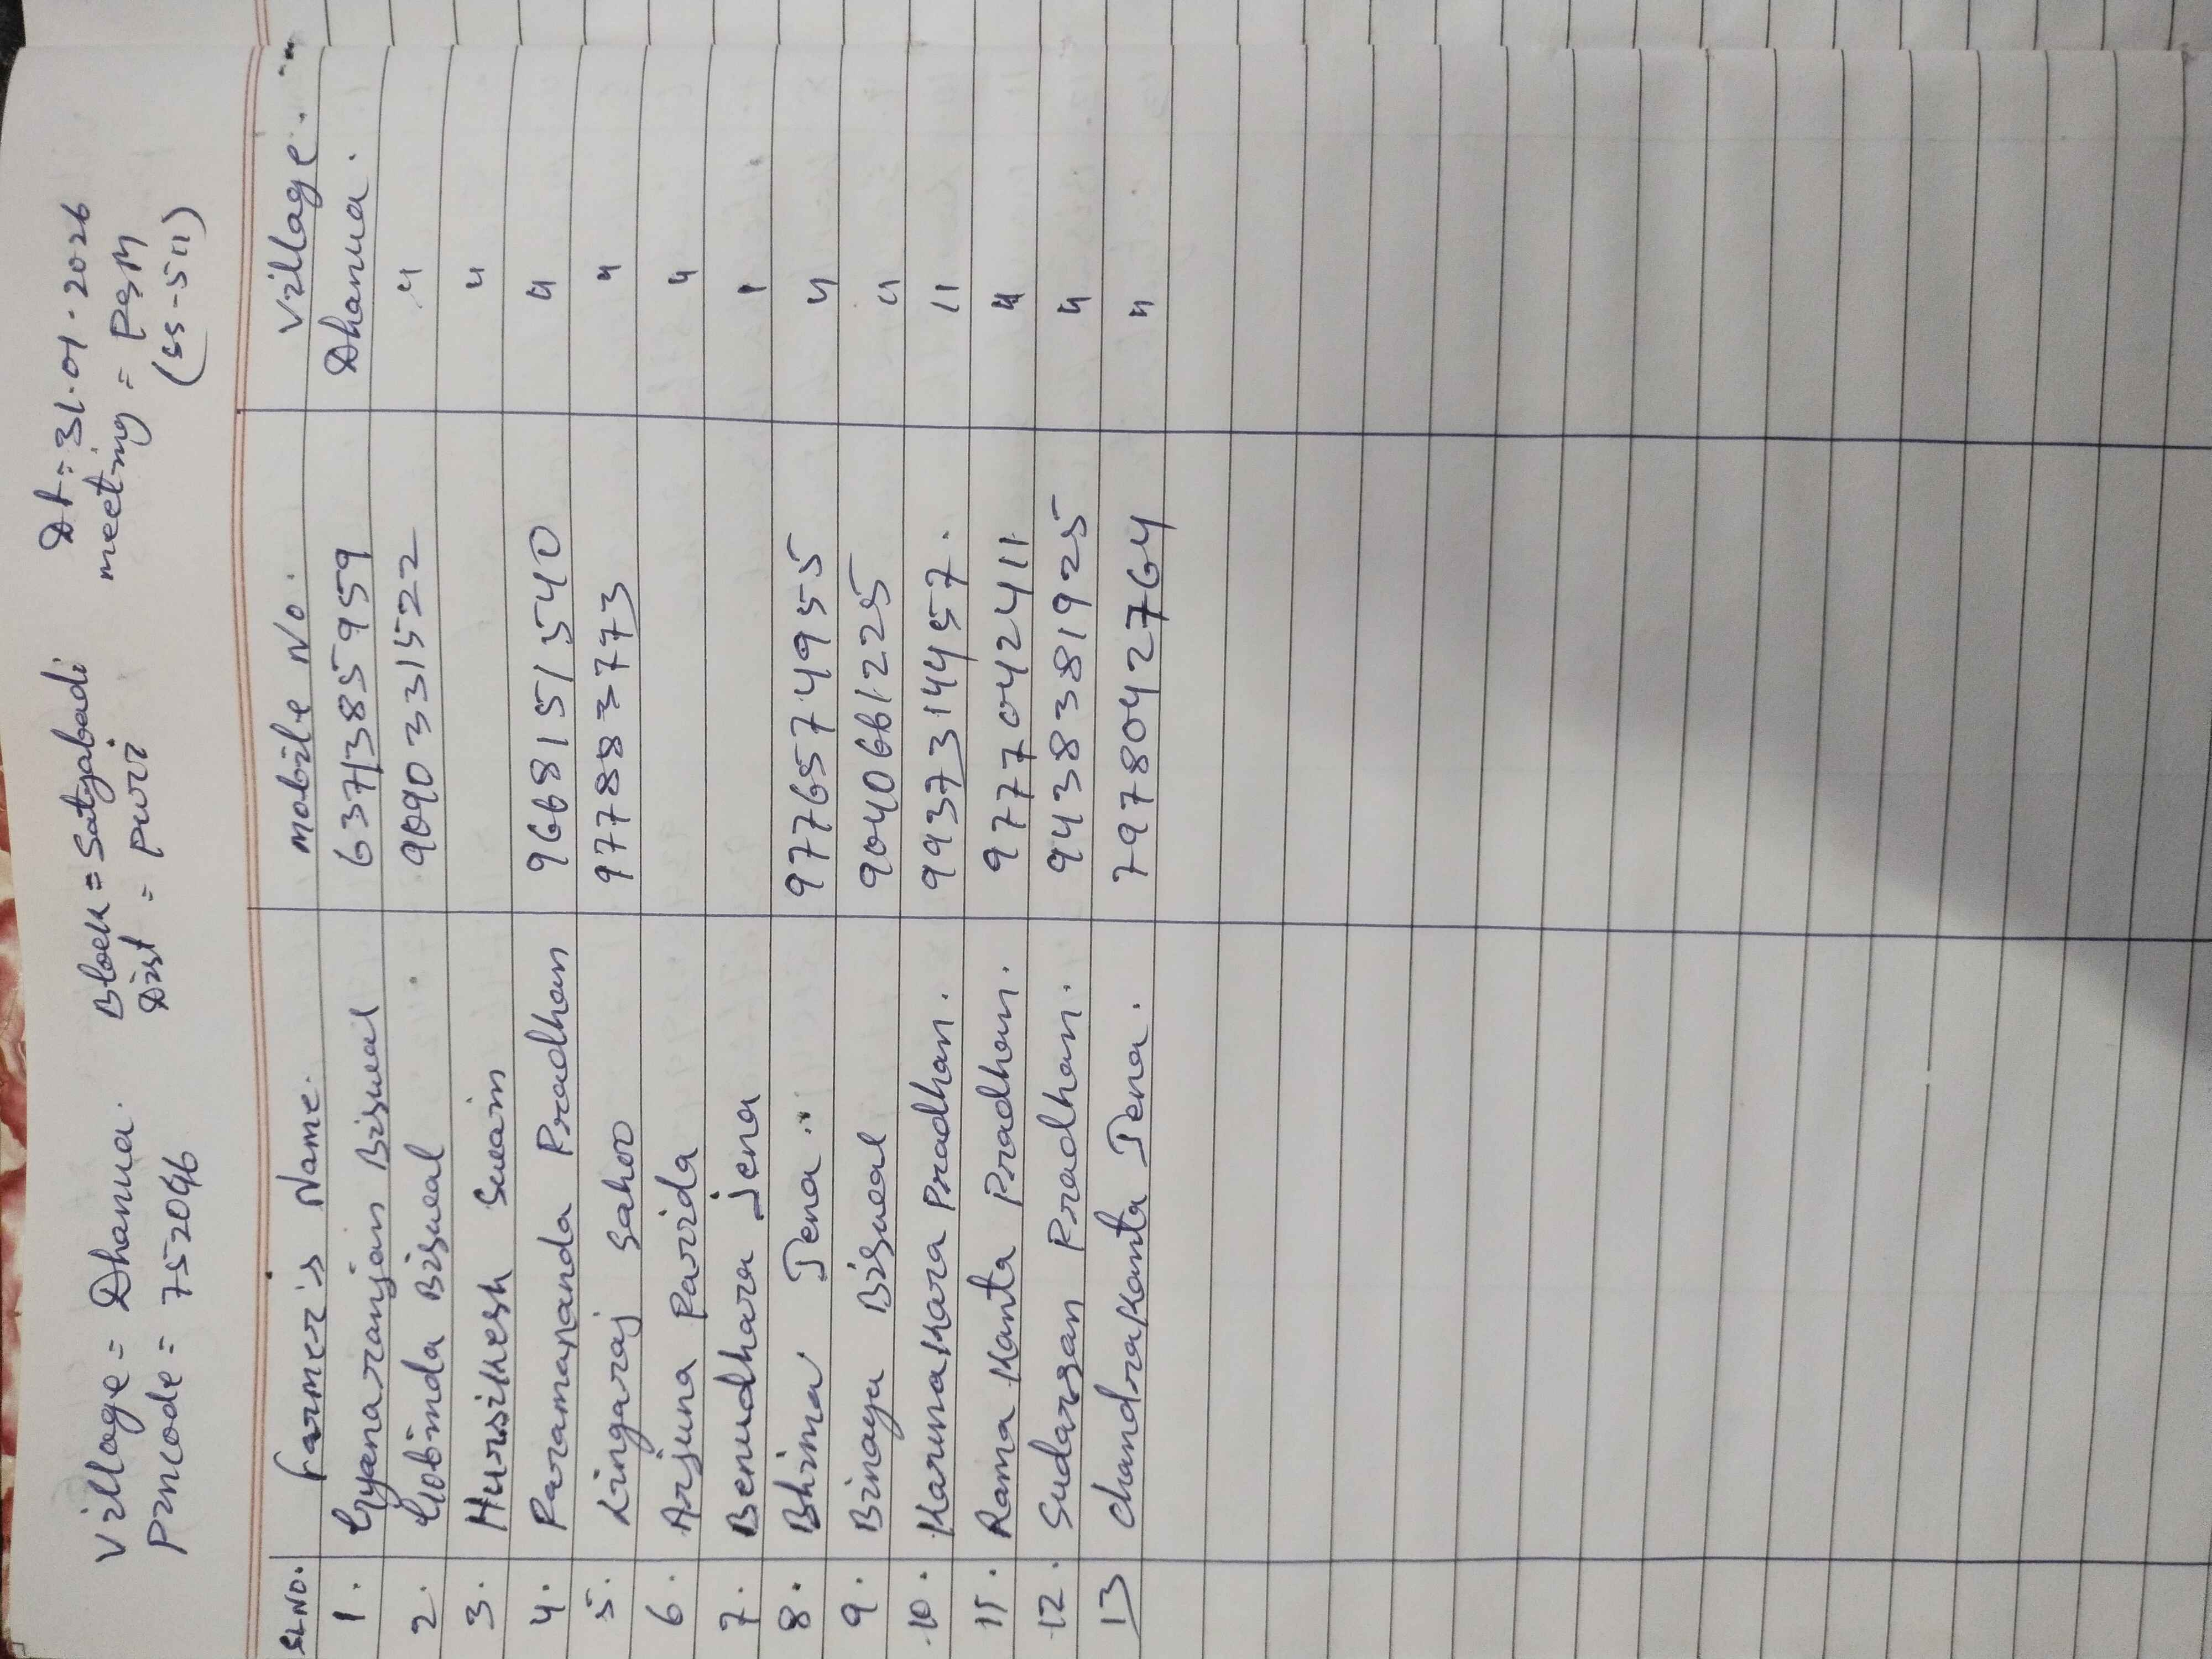 Village = Dhanua. Block = Satyabadi Dt:- 31.01.2026
Pincode = 752046 Dist = Puri meeting = PSM
(SS-511)
SL.NO. Farmer's Name. Mobile No. Village.
1. Gyanaranjan Biswal 6371385959 Dhanua.
2. Gobinda Biswal 9090331522 "
3. Hursikesh Swain "
4. Paramananda Pradhan 9668151540 "
5. Lingaraj Sahoo 9778837773 "
6. Arjuna Parida "
7. Benudhara Jena "
8. Bhima Jena 9776574955 "
9. Binaya Biswal 9040661225 "
10. Karunakara Pradhan. 9937314457. "
11. Rama Kanta Pradhan. 9777042411 "
12. Sudarsan Pradhan. 9438381925 "
13 Chandrakanta Jena. 7978042764 "